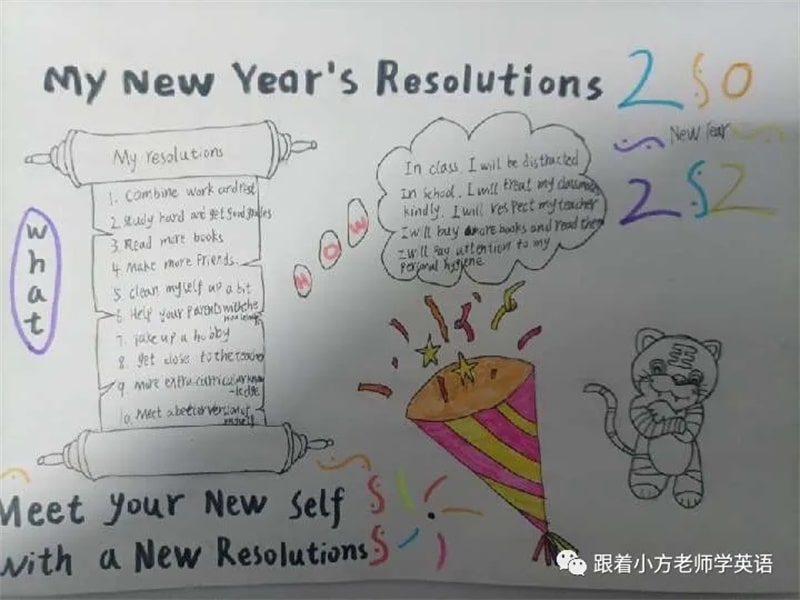 My New Year's Resolutions
New Year
2
My resolutions
1. Combine work and rest
2. Study hard and get good grades
3. Read more books
4. Make more Friends
5. clean myself up a bit
6. Help your parents with the
7. Take up a hobby
8. get close to the teacher
9. more extra-curricular know
-ledge
10. Meet a better version of
myself
what
HOW
In class. I will be distracted
In school. I will treat my classmates
kindly. I will respect my teacher
I will buy more books and read them
I will pay attention to my
personal hygiene
Meet your New Self
With a New Resolutions
跟着小方老师学英语